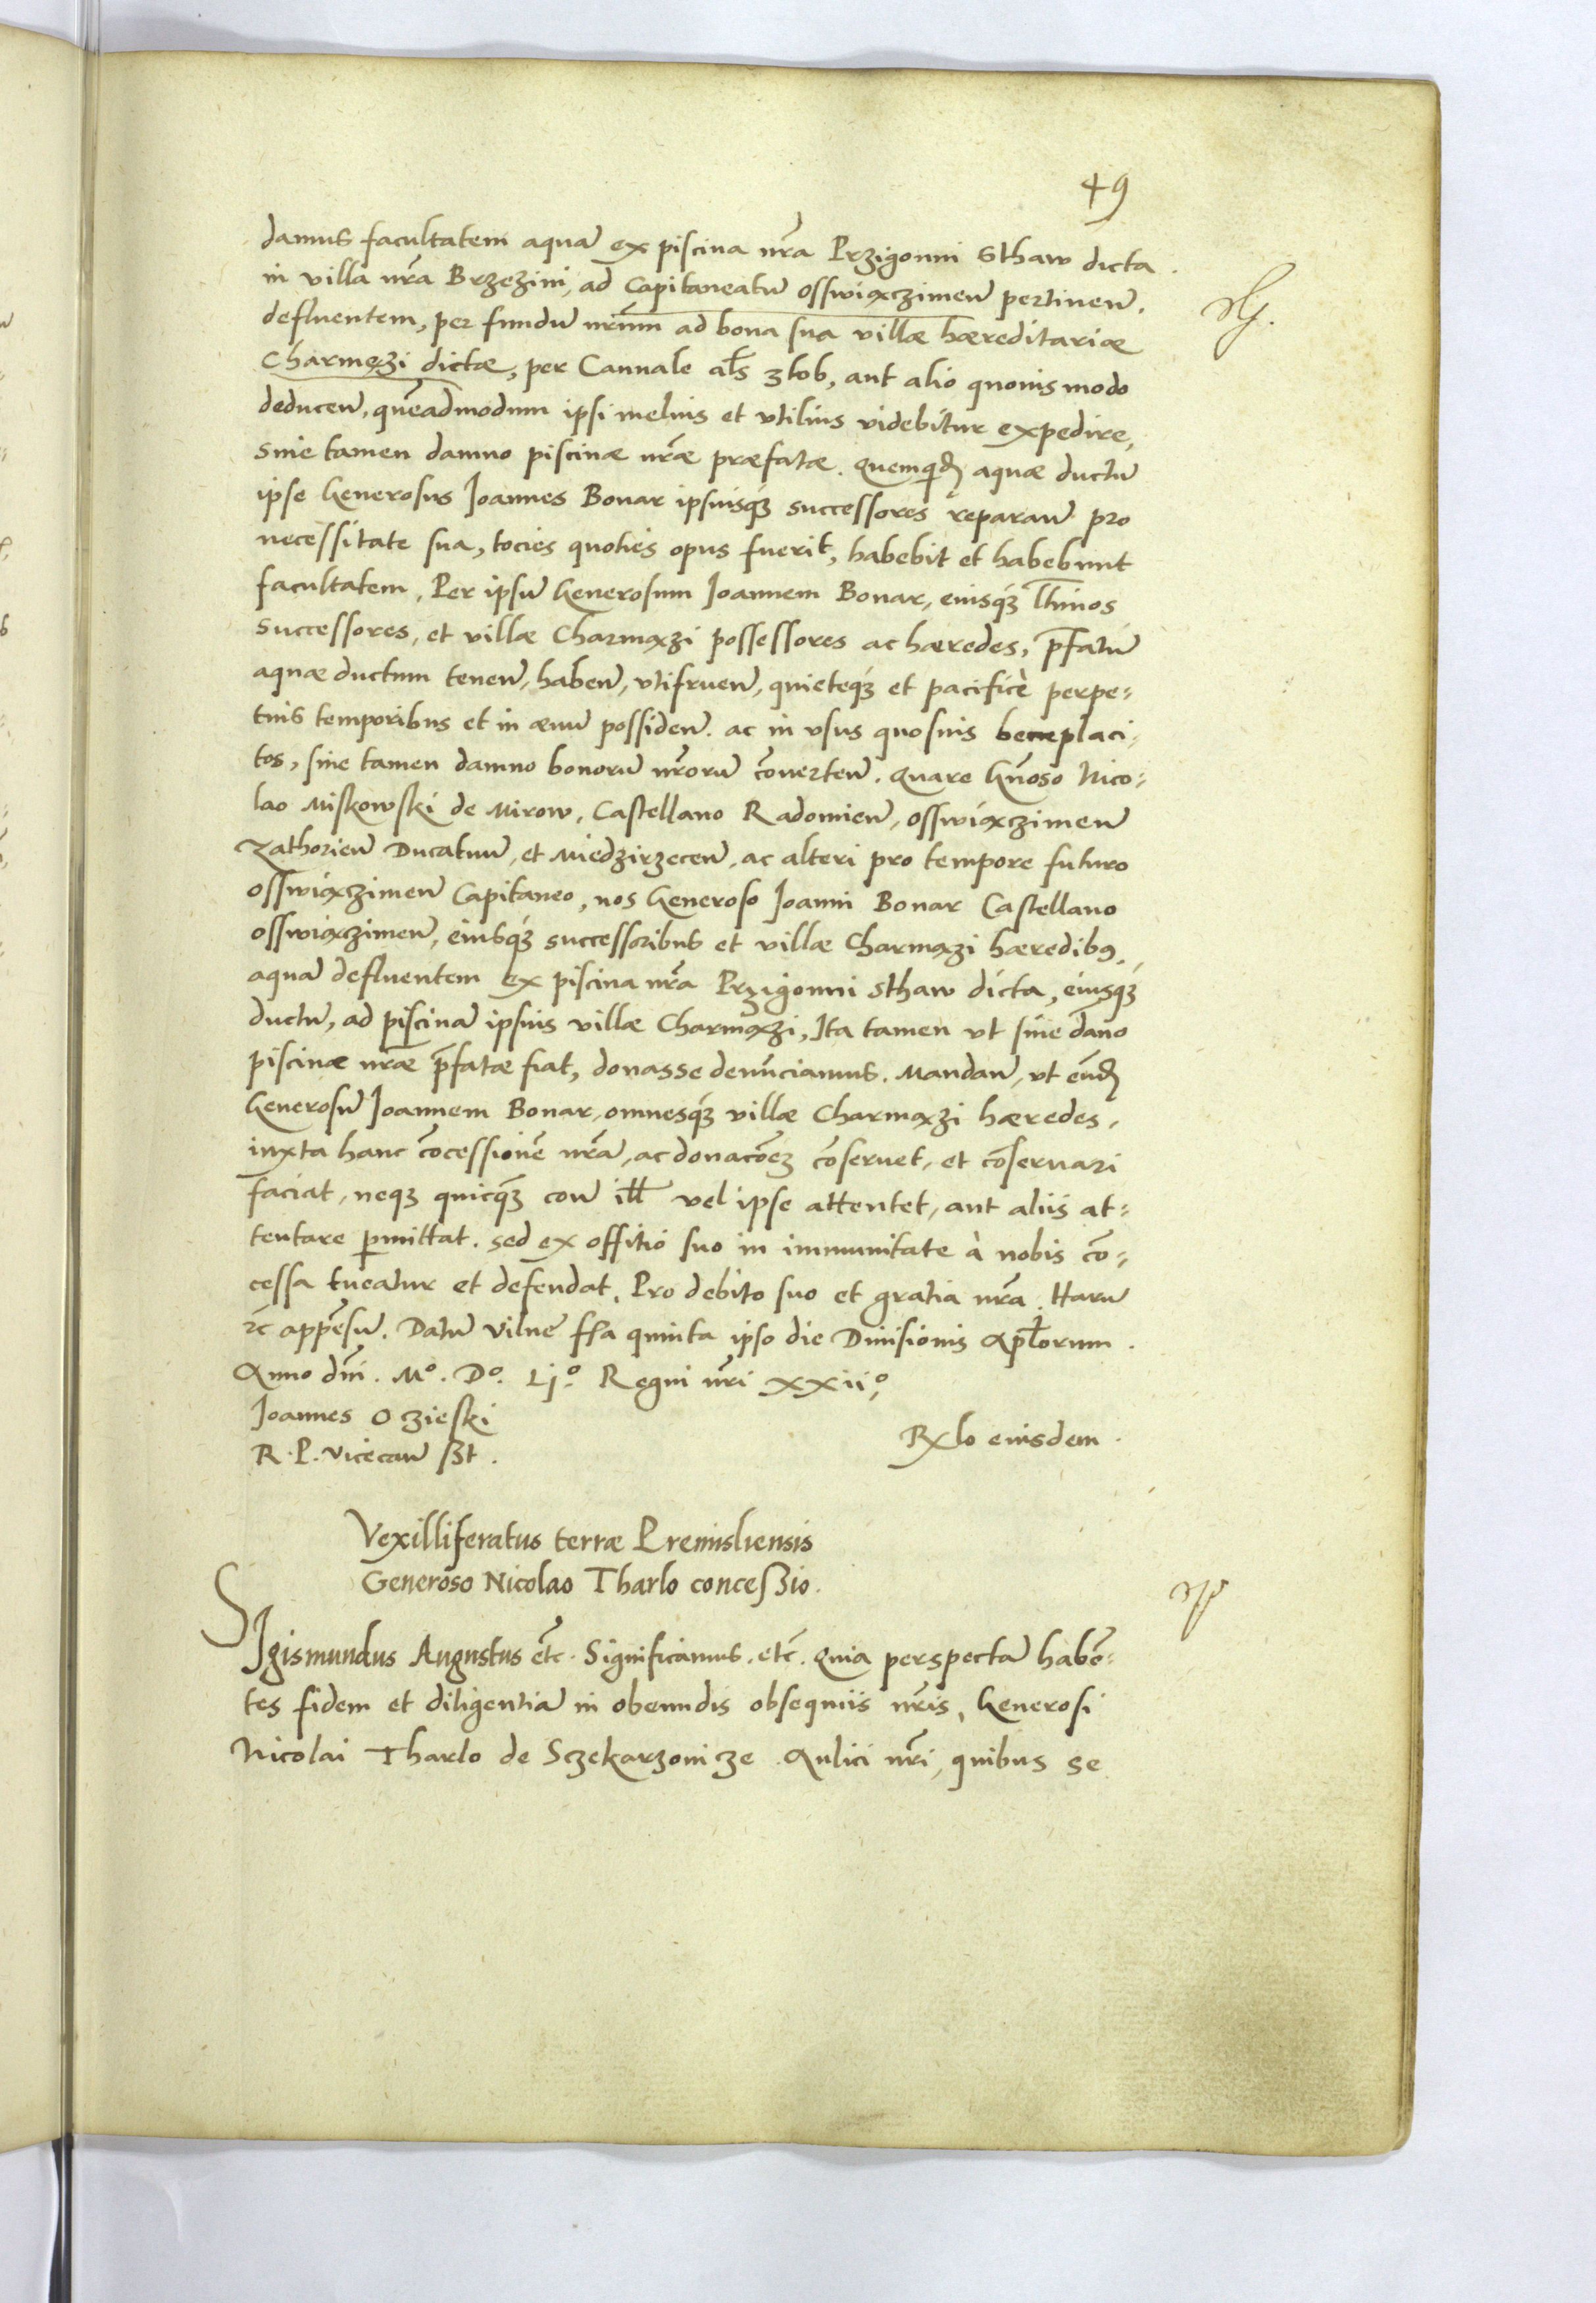 49
damus facultatem aquā ex piscina nr̃a Przigonni Sthaw dicta
in villa nr̃a Brzezini, ad Capitaneatū osswiączimeñ pertineñ.
defluentem, per fundū nrũm ad bona sua villæ hæreditariæ
Charmęzi dictæ, per Cannale al̃s zlob, aut alio quouis modo
deduceñ, quẽadmodum ipsi melius et vtilius videbitur expedire,
sine tamen damno piscinæ nr̃æ præfatæ. quemqid̃ aquæ ductū
ipse Generosus Joannes Bonar ipsiusq́ȝ successores reparañ pro
necessitate sua, tocies quoties opus fuerit, habebit et habebunt
facultatem. Per ipsū Generosum Joannem Bonar, eiusq́ȝ lthinos
successores, et villæ Charmązi possessores ac hæredes, p̃fatū
aquæ ductum teneñ, habeñ, vtifrueñ, quieteq́ȝ et pacificè perpe:
tuis temporibus et in æuū possideñ. ac in vsus quosuis beneplaci:
tos, sine tamen damno bonorū nr̃orū cõuerteñ. Quare Gñoso Nico:
lao Miskowski de Mirow, Castellano Radomieñ, osswiączimeñ
Zathorieñ Ducatuū, et Miedzirzeceñ, ac alteri pro tempore futuro
osswiączimeñ Capitaneo, nos Generoso Joanni Bonar Castellano
osswiączimeñ, eiusq́ȝ successoribus et villæ Charmązi hæredib9,
aquā defluentem ex piscina nr̃a Przigonni Sthaw dicta, eiusq́ȝ
ductū, ad piscinā ipsius villæ Charmązi, Ita tamen vt sine dãno
piscinæ nr̃æ p̃fatæ fiat, donasse denũciamus. Mandañ, vt eũd̃
Generosū Joannem Bonar, omnesq́ȝ villæ Charmązi hæredes,
iuxta hanc cõcessionẽ nr̃ā, ac donacõeȝ cõseruet, et cõseruari
faciat, neqȝ quicq̃ȝ coñ ill̃ vel ipse attentet, aut aliis at:
tentare p̱mittat. sed ex offitio suo in immunitate à nobis cõ:
cessa tueatur et defendat. Pro debito suo et gratia nr̃a. Harū
ꝛc̃ appẽsū. Datū Vilnæ ffa quinta ipso die Diuisionis Apl̃orum.
Anno dñi. Mº. Dº. Ljº. Regni nr̃i xxiiº,
Joannes Oczieski
R. P. vicecañ sßt.
Rx̃lo eiusdem.
Vexilliferatus terræ Premisliensis
Generoso Nicolao Tharlo conceßio.
SIgismundus Augustus et̃c. Significamus. et̃c. Quia perspectā habẽ:
tes fidem et diligentiā in obeundis obsequiis nr̃is, Generosi
Nicolai Tharlo de Sczekarzouicze Aulici nr̃i, quibus se